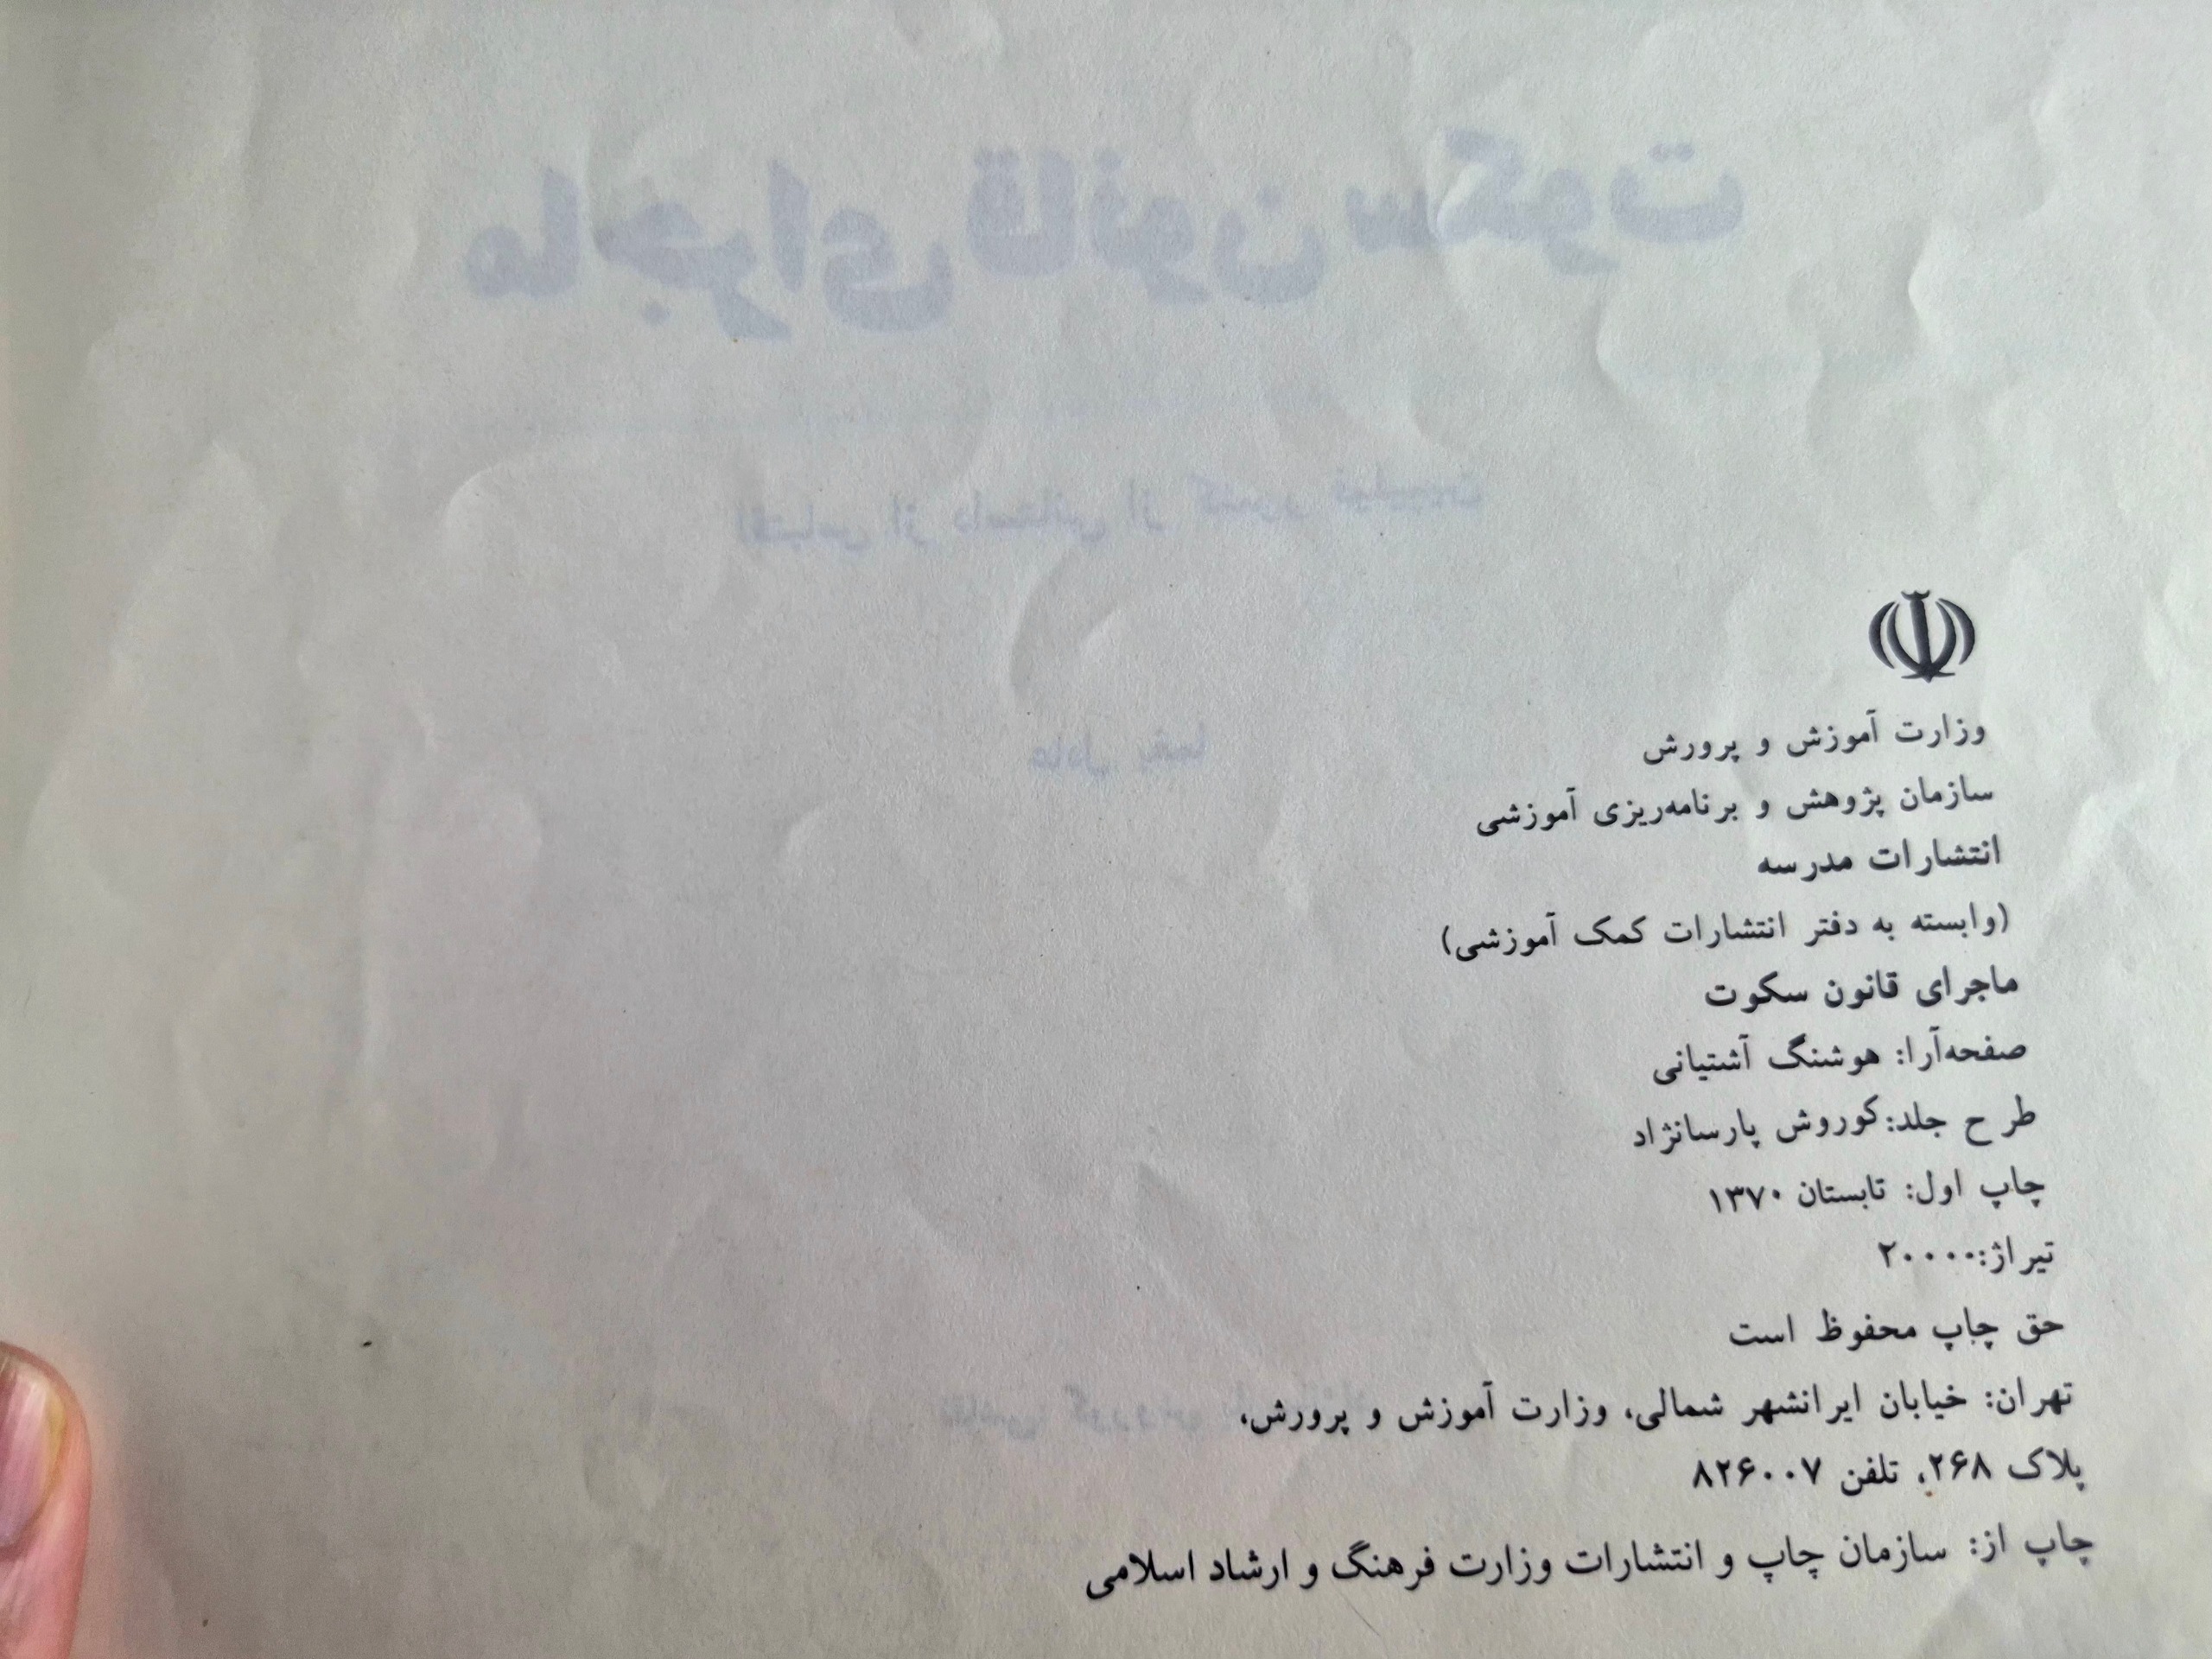 ماجرای قانون سکوت
اقتباس از داستانی از کشور فیلیپین
عادل یغما
وزارت آموزش و پرورش
سازمان پژوهش و برنامه‌ریزی آموزشی
انتشارات مدرسه
(وابسته به دفتر انتشارات کمک آموزشی)
ماجرای قانون سکوت
صفحه‌آرا: هوشنگ آشتیانی
طرح جلد:کوروش پارسانژاد
چاپ اول: تابستان ۱۳۷۰
تیراژ:۲۰۰۰۰
حق چاپ محفوظ است
تهران: خیابان ایرانشهر شمالی، وزارت آموزش و پرورش،
پلاک ۲۶۸، تلفن ۸۲۶۰۰۷
چاپ از: سازمان چاپ و انتشارات وزارت فرهنگ و ارشاد اسلامی